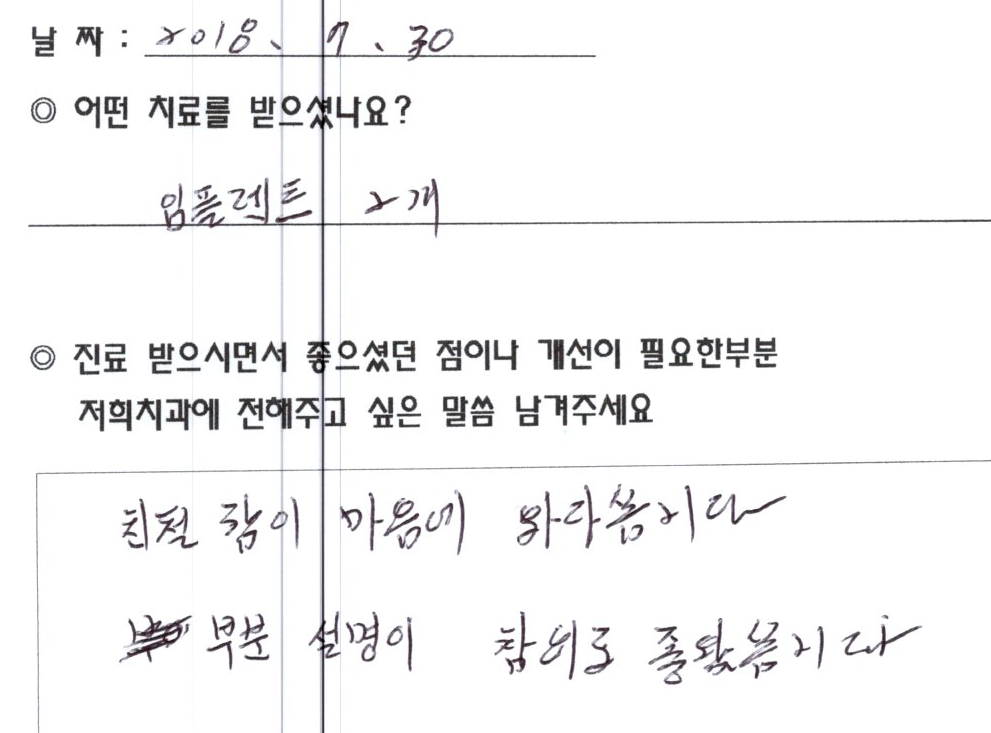 날 짜 : 2018. 7. 30
◎ 어떤 치료를 받으셨나요?
임플렌트 2개
◎ 진료 받으시면서 좋으셨던 점이나 개선이 필요한부분
저희치과에 전해주고 싶은 말씀 남겨주세요
친절 함이 마음에 와다씀니다
부분 설명이 참으로 좋았씀니다